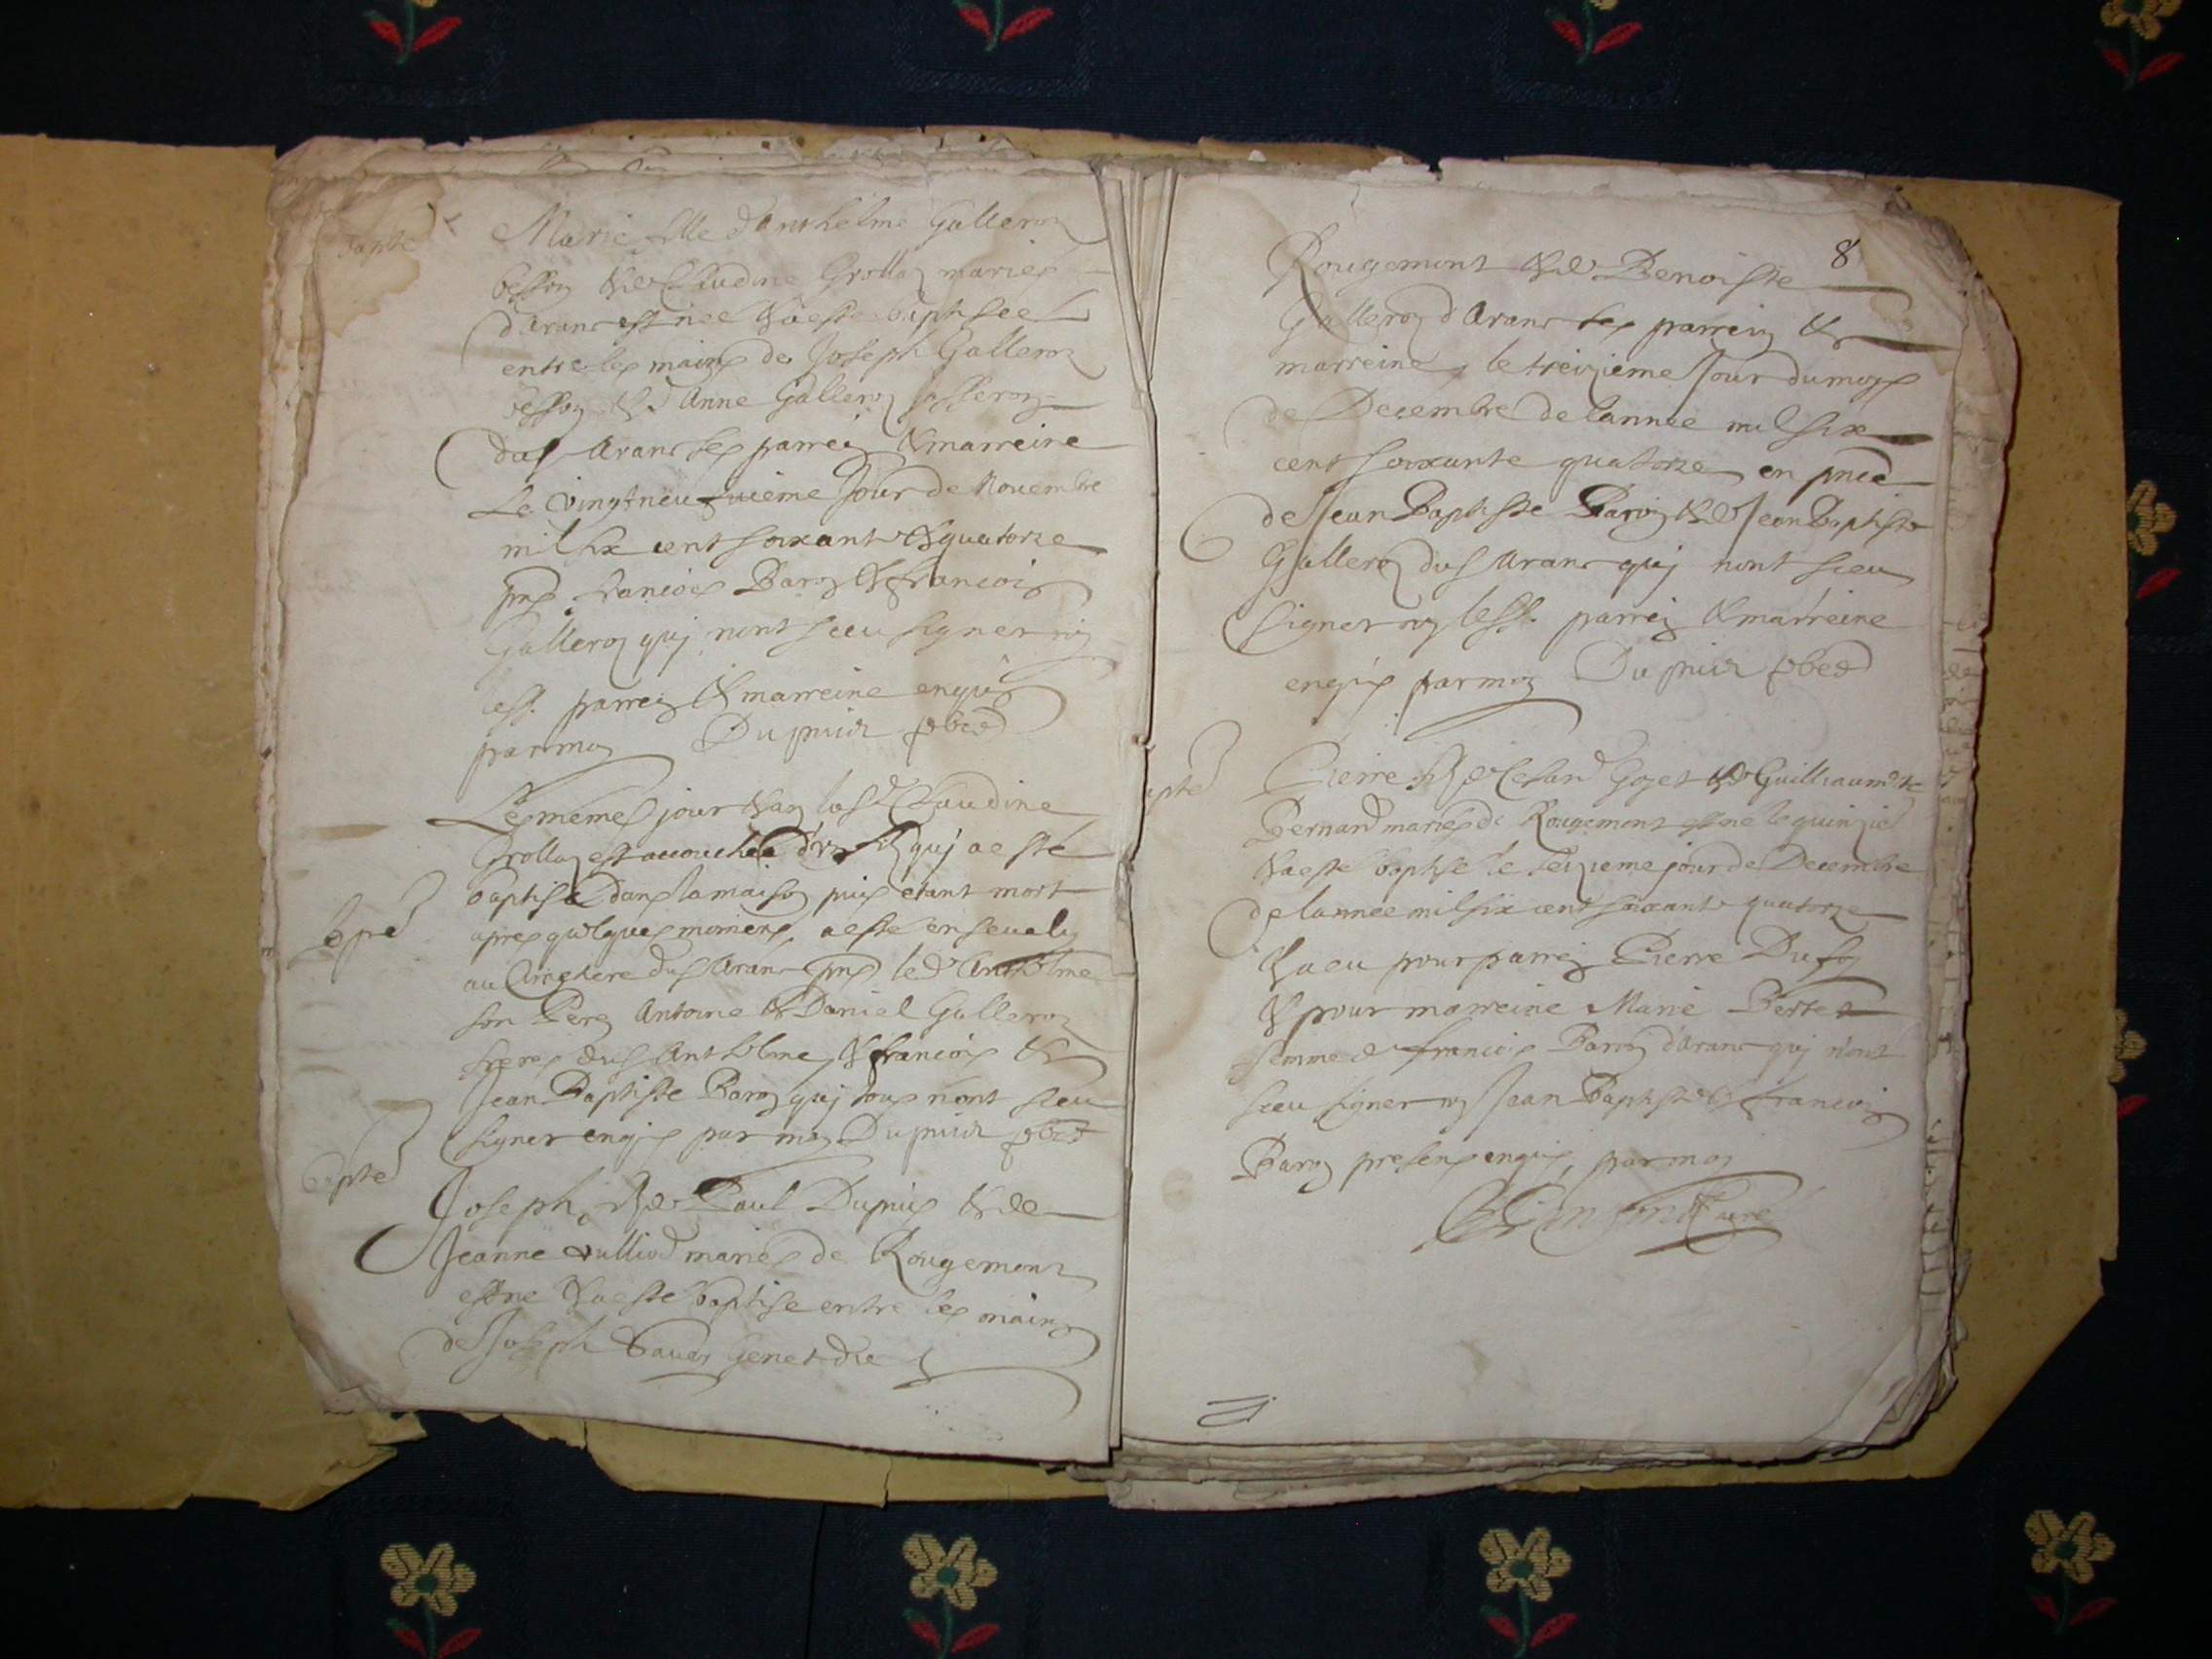 Marie fille d'anthelme Galleron
besson & de Claudine Grollaz mariés
d'Aranc est née & a este baptisee
entre les mains de Joseph Galleron
besson & d'Anne Galleron
dud Aranc ses parrein & marreine
Le vingt neufvieme Jour de Novembre
mil six cent soixante & quatorze
pns francois Baron & francois
Galleron quj n'ont sceu signer nj
less. parrein & marreine enquis
par moy Dupuis pbre
Le mesme jour & an lad Claudine
Grollaz est accouchée d'un fils quj a esté
baptisé dans la maison puis etant mort
apres quelques momens, a esté ensevely
au Cimetiere dud Aranc pns led Anthelme
son Pere Antoine & Daniel Galleron
freres dud Anthelme, & francois &
Jean Baptiste Baron quj tous n'ont sceu
signer enquis par moy Dupuis pbre
bapte
Joseph fils de Paul Dupuis & de
Jeanne vulliod mariés de Rougemont
est né & a este baptise entre les mains
de Joseph Savey Genet de
8
Rougemont & de Benoiste
Galleron d'Aranc ses parrein &
marreine, le treizieme Jour du mois
de Decembre de lannée mil six
cent soixante quatorze en pnce
de Jean Baptiste Baron & de Jean Baptiste
Galleron dud Aranc quj n'ont sceu
signer ny less. parrein & marreine
enquis par moy Dupuis pbre
bapte
Pierre fils de Cesard Goyet & de Guilliaumete
Bernard mariés de Rougemont est né le quinzie
& a esté baptisé le seizieme jour de Decembre
de lannee mil six cent soixante quatorze
& a eu pour parrein Pierre Dufoy
& pour marreine Marie Bertet
femme de francois Baron d'Aranc quj n'ont
sceu signer nj Jean Baptiste & francois
Baron presens enquis, par moy
Curé